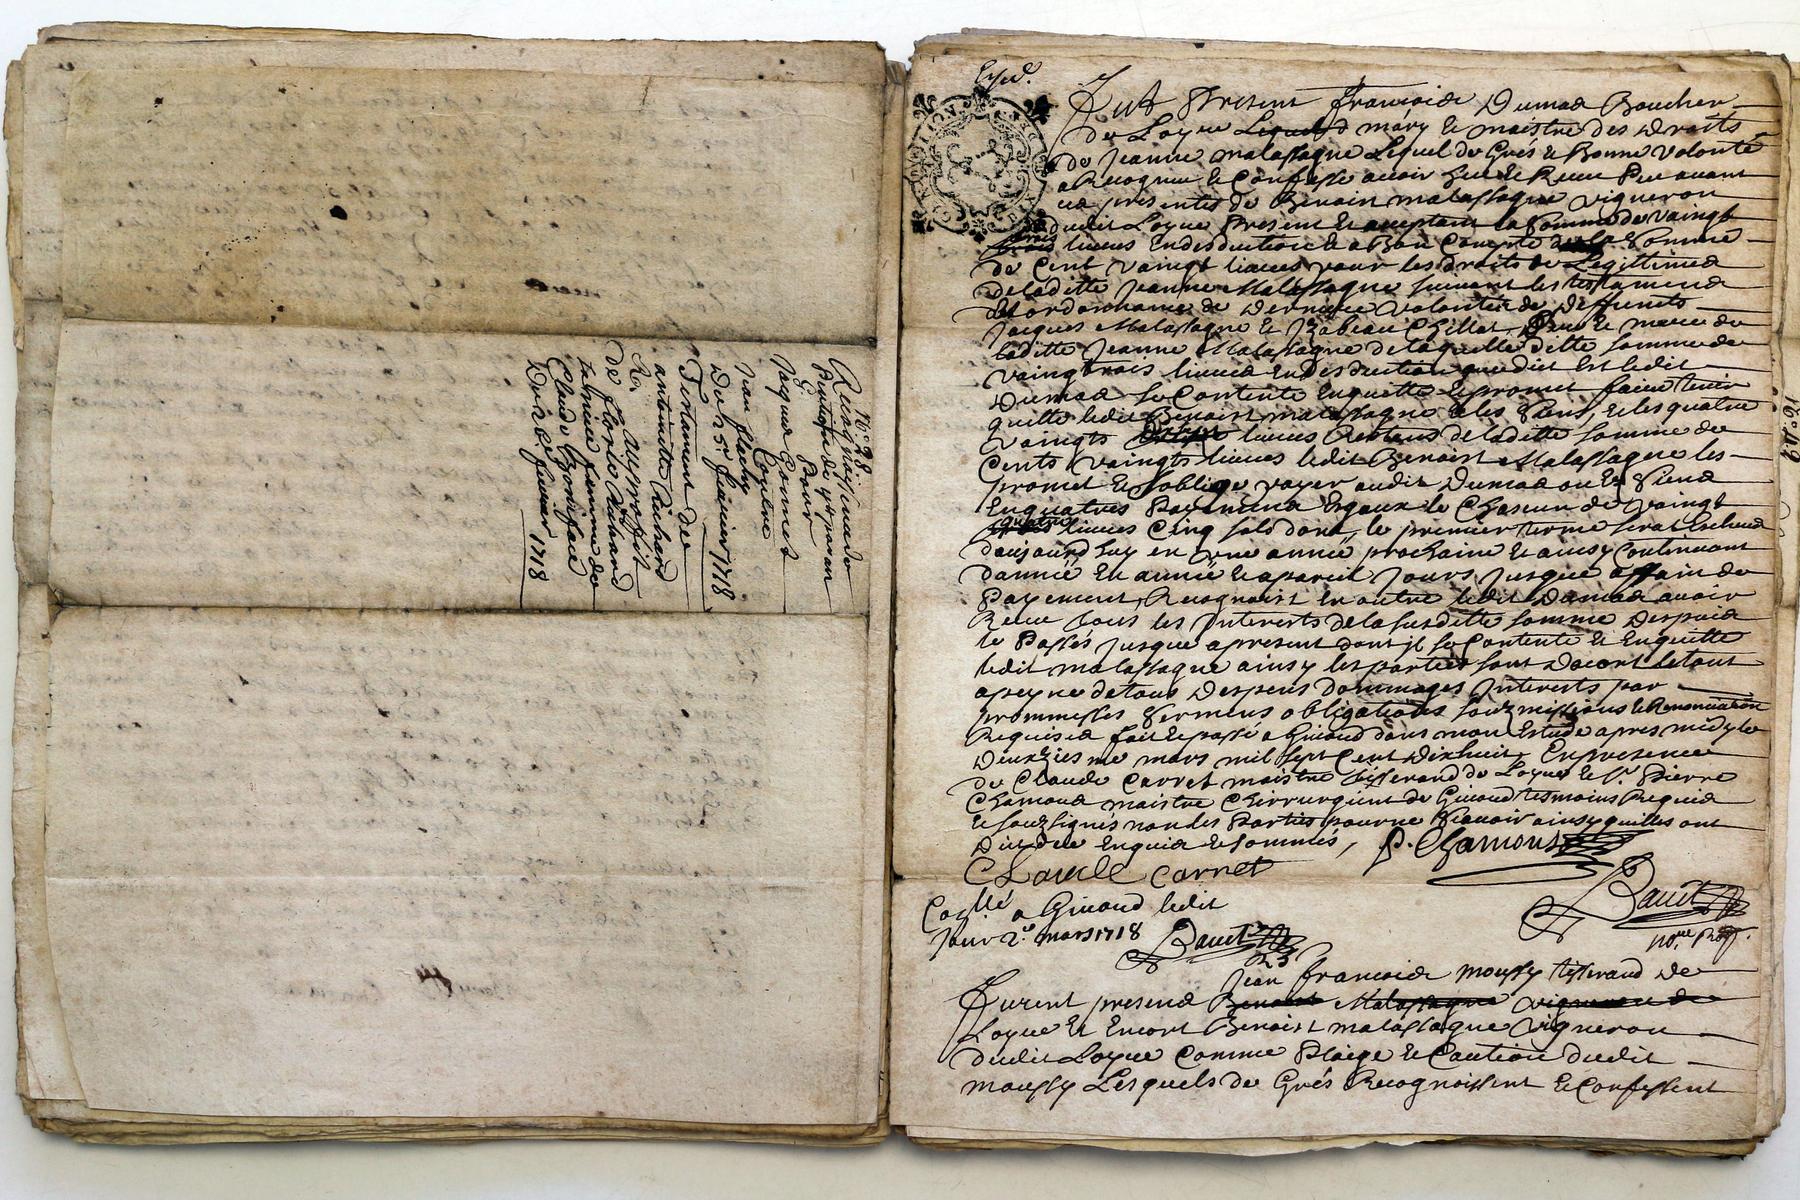 N.° 28.
Recognoissance de
pention de
Pour
Jacques Gonnet
Contre
Jean flachy
Du 25.e fevrier 1718
Testament de
antoinette Richard
Au proffit
de florie Richard
femme de
Claude Boniface
Du 28.e fevrier 1718
Exp.d
Fut Present francois Dumas Boucher
de Loyre Lequel mary et maistre des Droits
de Jeanne malassagne Lequel de Grés et Bonne volonté
a Recogneu et Confessé avoir heu et Receu Peu avant
ces presentes de Benoist malassagne vigneron
dudit Loyre Present et acceptant la Somme de vaingt
trois livres En desduction et a Bon Compte de la Somme
de Cent vaingt livres pour les droits de Legittimes
de laditte Jeanne Malassagne suivant les testaments
et ordonnance de Derniere volonté de Deffunts
Jacques Malassagne et Izabeau Chillat Pere et mere de
laditte Jeanne Malassagne de laquelle ditte Somme de
vaingtrois livres En desduction que dit Est ledit
Dumas se Contente Enquitte et promet faire tenir
quitte ledit Benoist malassagne et les Siens, et les quatre
vaingts livres Restans de laditte Somme de
Cents vaingts livres ledit Benoist Malassagne les
promet et soblige payer audit Dumas ou Es Siens
En quatres Payements Egaux le Chascun de vaingt
quatre livres Cinq sols dont le premier terme sera Escheu
daujourdhuy en une année prochaine et ainsy Continuant
dannée En année et apareil Jours Jusque affain de
Payement, Recognoist En outre ledit Dumas avoir
Receu tous les Interests de la susditte Somme Despuis
le Passés Jusque apresent dont jl se Contente et Enquitte
ledit malassagne ainsy les parties sont Dacort le tout
apeyne de tous Despens dommages Interests par
prommesses Sermens obligations souzmissions et Renonciation
Requises fait et passé a Givord dans mon Estude apres midy le
Deuxziesme mars mil sept Cent dixhuit, En presence
de Claude Carret maistre tisserand de Loyre et S.r Pierre
Chamous maistre Chirrurgient de Givord tesmoins Requis
et souzsignés non les Parties pour ne Scavoir ainsy quilles ont
Dit de ce Enquis et sommés, P. Chamous
Claude Carret
Baret
no.re Roy.
Coll.é a Givord ledit
Jour 2.e mars 1718 Baret
Jean francois moussy tisserand de
Furent presens Benoist Malassagne vigneron de
Loyre Et Encort Benoist malassagne vigneron
dudit Loyre Comme Plaige et Caution dudit
moussy Lesquels de Grés Recognoissent et Confessent